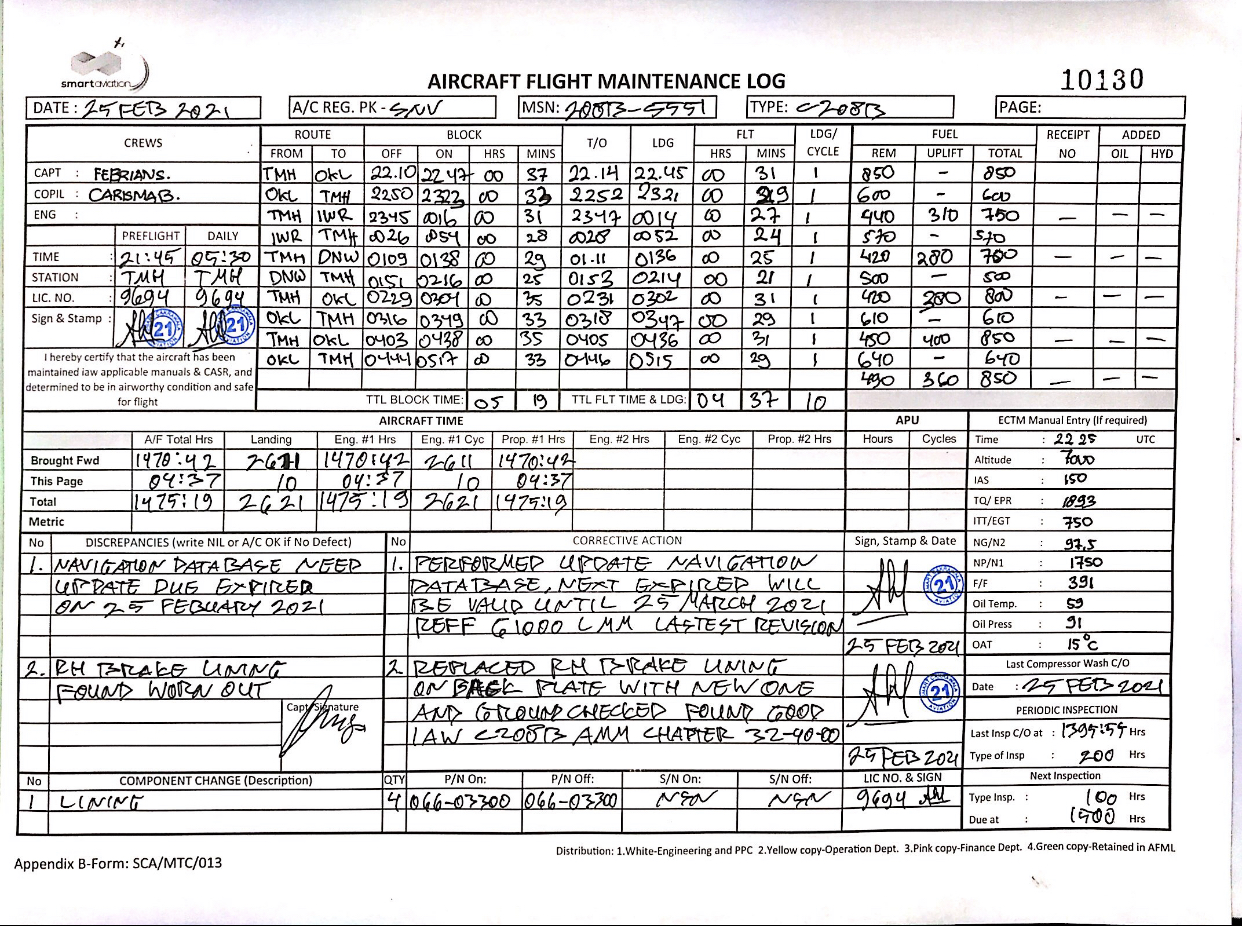 smartaviation
AIRCRAFT FLIGHT MAINTENANCE LOG
10130
DATE : 25 FEB 2021 A/C REG. PK - SNV MSN: 208B-5551 TYPE: C208B PAGE:
CREWS ROUTE BLOCK T/O LDG FLT LDG/ CYCLE FUEL RECEIPT NO ADDED
FROM TO OFF ON HRS MINS HRS MINS REM UPLIFT TOTAL OIL HYD
CAPT : FEBRIANS. TMH OKL 22.10 2247 00 37 22.14 22.45 00 31 1 850 - 850
COPIL : CARISMAB. OKL TMH 2250 2323 00 33 2252 2321 00 29 1 600 - 600
ENG : TMH IWR 2345 0016 00 31 2347 0014 00 27 1 440 310 750 - - -
PREFLIGHT DAILY IWR TMH 0026 0054 00 28 0028 0052 00 24 1 570 - 570
TIME : 21:45 05:30 TMH DNW 0109 0138 00 29 01.11 0136 00 25 1 420 280 700 - - -
STATION : TMH TMH DNW TMH 0151 0216 00 25 0153 0214 00 21 1 500 - 500
LIC. NO. : 9694 9694 TMH OKL 0229 0304 00 35 0231 0302 00 31 1 420 800 - - -
Sign & Stamp : 21 21 OKL TMH 0316 0349 00 33 0318 0347 00 29 1 610 - 610
TMH OKL 0403 0438 00 35 0405 0436 00 31 1 450 400 850 - - -
I hereby certify that the aircraft has been OKL TMH 0444 0517 00 33 0446 0515 00 29 1 640 - 640
maintained iaw applicable manuals & CASR, and 490 360 850 - - -
determined to be in airworthy condition and safe
for flight
TTL BLOCK TIME: 05 19 TTL FLT TIME & LDG: 04 37 10
AIRCRAFT TIME APU ECTM Manual Entry (If required)
A/F Total Hrs Landing Eng. #1 Hrs Eng. #1 Cyc Prop. #1 Hrs Eng. #2 Hrs Eng. #2 Cyc Prop. #2 Hrs Hours Cycles Time : 22 25 UTC
Brought Fwd 1470:42 2611 1470:42 2611 1470:42 Altitude : 7000
This Page 04:37 10 04:37 10 04:37 IAS : 150
Total 1475:19 2621 1475:19 2621 1475:19 TQ/ EPR : 1893
Metric ITT/EGT : 750
No DISCREPANCIES (write NIL or A/C OK if No Defect) No CORRECTIVE ACTION Sign, Stamp & Date NG/N2 : 97.5
1. NAVIGATION DATABASE NEED 1. PERFORMED UPDATE NAVIGATION NP/N1 : 1750
UPDATE DUE EXPIRED DATABASE, NEXT EXPIRED WILL 21 F/F : 391
ON 25 FEBUARY 2021 BE VALID UNTIL 25 MARCH 2021 Oil Temp. : 59
REFF G1000 LMM LASTEST REVISION Oil Press : 91
25 FEB 2021 OAT : 15°C
2. RH BRAKE LINING 2 REPLACED RH BRAKE LINING Last Compressor Wash C/O
FOUND WORN OUT ON BACK PLATE WITH NEW ONE 21 Date : 25 FEB 2021
Capt Signature AND GROUND CHECKED FOUND GOOD PERIODIC INSPECTION
IAW C208B AMM CHAPTER 32-40-00 Last Insp C/O at : Hrs
25 FEB 2021 Type of Insp : 200 Hrs
No COMPONENT CHANGE (Description) QTY P/N On: P/N Off: S/N On: S/N Off: LIC NO. & SIGN Next Inspection
1 LINING 4 066-03300 066-03300 NSN NSN 9694 Type Insp. : 100 Hrs
Due at : 1500 Hrs
Distribution: 1.White-Engineering and PPC 2.Yellow copy-Operation Dept. 3.Pink copy-Finance Dept. 4.Green copy-Retained in AFML
Appendix B-Form: SCA/MTC/013